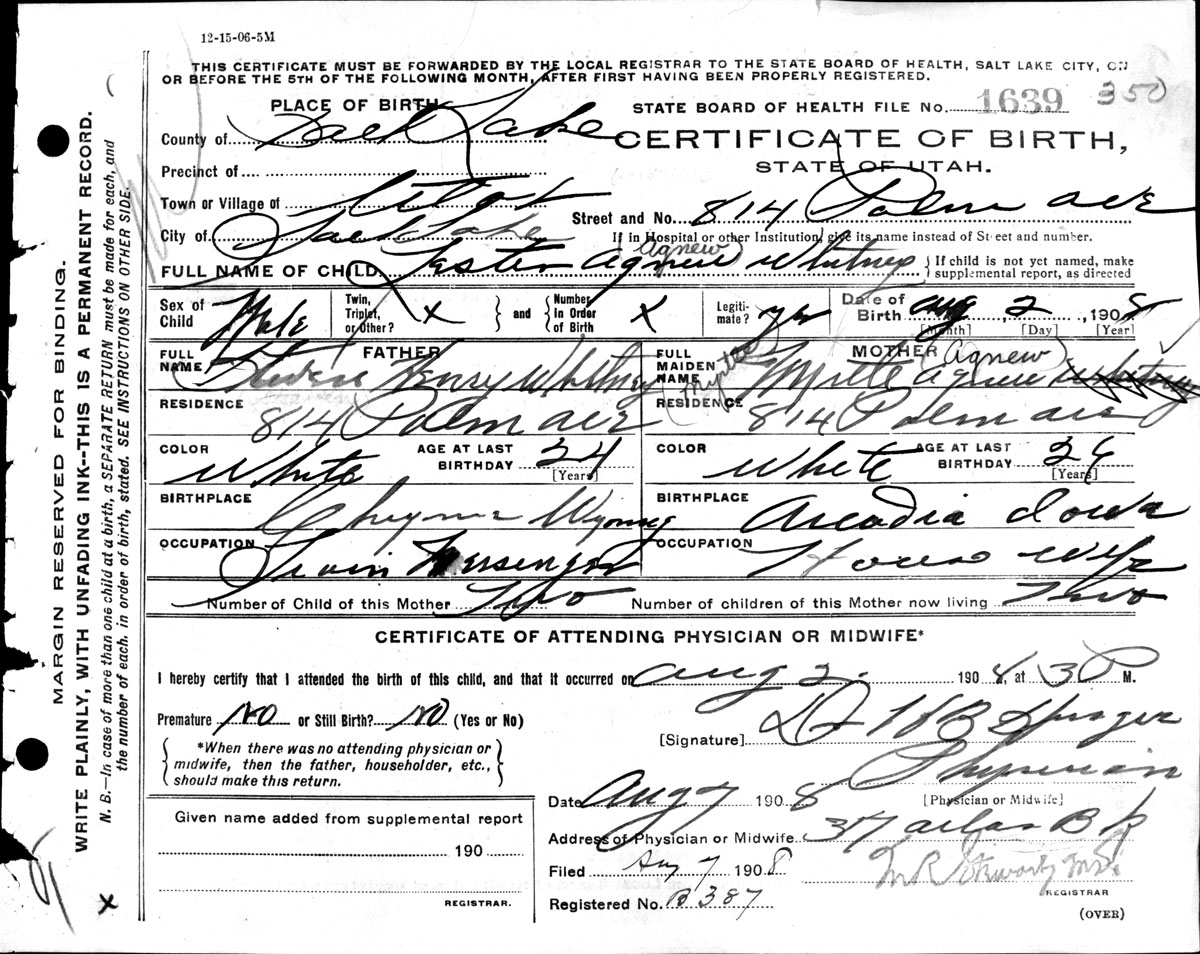 12-15-06-5M
THIS CERTIFICATE MUST BE FORWARDED BY THE LOCAL REGISTRAR TO THE STATE BOARD OF HEALTH, SALT LAKE CITY, ON
OR BEFORE THE 5TH OF THE FOLLOWING MONTH, AFTER FIRST HAVING BEEN PROPERLY REGISTERED.
MARGIN RESERVED FOR BINDING.
WRITE PLAINLY, WITH UNFADING INK--THIS IS A PERMANENT RECORD.
N. B.—In case of more than one child at a birth, a SEPARATE RETURN must be made for each, and
the number of each. in order of birth, stated. SEE INSTRUCTIONS ON OTHER SIDE.
X
PLACE OF BIRTH
STATE BOARD OF HEALTH FILE No. 1639 350
County of Salt Lake
CERTIFICATE OF BIRTH,
STATE OF UTAH.
Precinct of
Town or Village of
Street and No. 814 Palm ave
City of Salt Lake
If in Hospital or other Institution, give its name instead of Street and number.
Agnew
FULL NAME OF CHILD Lester Agnew Whitney
If child is not yet named, make
supplemental report, as directed
Sex of Child Male
Twin, Triplet, or Other? X
and
Number in Order of Birth X
Legiti- mate? yes
Date of Birth Aug 2, 1908
[Month] [Day] [Year]
FULL NAME FATHER
Henry Whitney
FULL MAIDEN NAME MOTHER
(Agnew)
(Myrtle)
Myrtle Agnew Whitney
RESIDENCE 814 Palm ave
RESIDENCE 814 Palm ave
COLOR White
AGE AT LAST BIRTHDAY 24 [Years]
COLOR White
AGE AT LAST BIRTHDAY 26 [Years]
BIRTHPLACE Wyoming
BIRTHPLACE Arcadia Iowa
OCCUPATION Train Messenger
OCCUPATION House wife
Number of Child of this Mother Two
Number of children of this Mother now living Two
CERTIFICATE OF ATTENDING PHYSICIAN OR MIDWIFE*
I hereby certify that I attended the birth of this child, and that it occurred on Aug 2. 1908, at 30 P M.
Premature? No or Still Birth? No (Yes or No)
[Signature] Dr
*When there was no attending physician or
midwife, then the father, householder, etc.,
should make this return.
Physician
[Physician or Midwife]
Date Aug 7 1908
Address of Physician or Midwife 37 Atlas Bk
Filed Aug 7 1908
REGISTRAR
Registered No. B 387
(OVER)
Given name added from supplemental report
190
REGISTRAR.